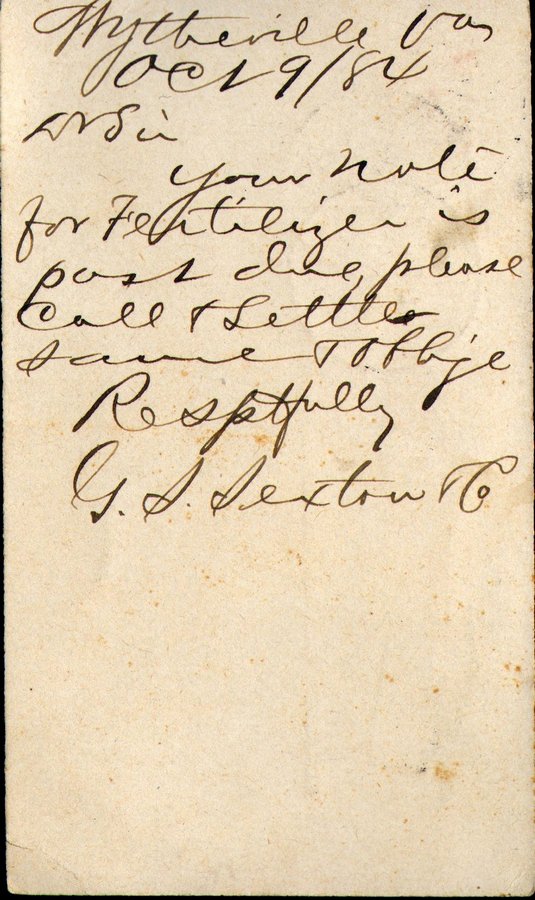 Wytheville Va
Oct 9/84
Dr Sir
Your note
for Fertilizer is
past due, please
Call & Settle
same & Oblige
Resptfully
G. S. Sexton & Co